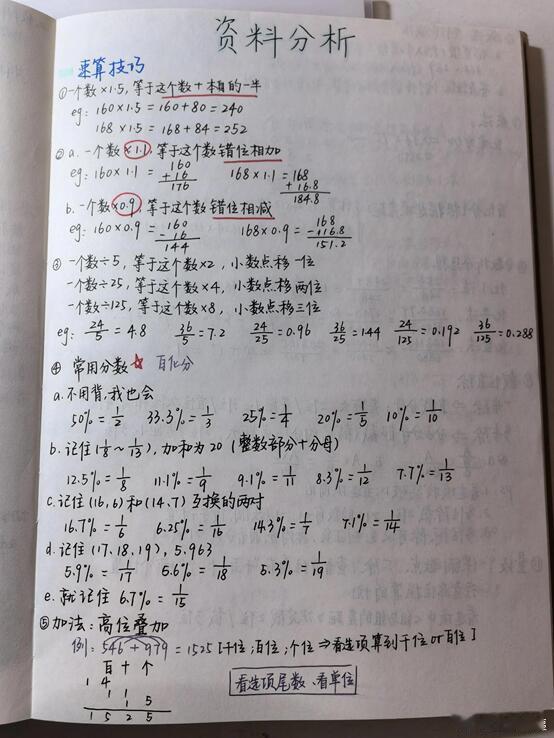 资料分析
乘算技巧
①一个数×1.5,等于这个数+本身的一半
eg: 160×1.5=160+80=240
168×1.5=168+84=252
② a. 一个数×1.1,等于这个数错位相加
eg: 160×1.1 = 160 +16 176 168×1.1 = 168 +16.8 184.8
b. 一个数×0.9, 等于这个数错位相减
eg: 160×0.9 = 160 -16 144 168×0.9 = 168 -16.8 151.2
③ 一个数÷5, 等于这个数×2, 小数点移一位
一个数÷25, 等于这个数×4, 小数点移两位
一个数÷125, 等于这个数×8, 小数点移三位
eg: 24/5=4.8 36/5=7.2 24/25=0.96 36/25=144 24/125=0.192 36/125=0.288
④ 常用分数☆ 百化分
a. 不用背,我也会
50%=1/2 33.3%=1/3 25%=1/4 20%=1/5 10%=1/10
b. 记住(1/8~1/13), 加和为20 (整数部分+分母)
12.5%=1/8 11.1%=1/9 9.1%=1/11 8.3%=1/12 7.7%=1/13
c. 记住(16,6)和(14,7)互换的两对
16.7%=1/6 6.25%=1/16 14.3%=1/7 7.1%=1/14
d. 记住(17.18.19), 5.963
5.9%=1/17 5.6%=1/18 5.3%=1/19
e. 就记住 6.7%=1/15
⑤加法:高位叠加
例: 546+979=1525 [千位,百位,个位⇒看选项算到千位or百位]
百十个
1 4
1 1
1 5
1 5 2 5
看选项尾数、看单位